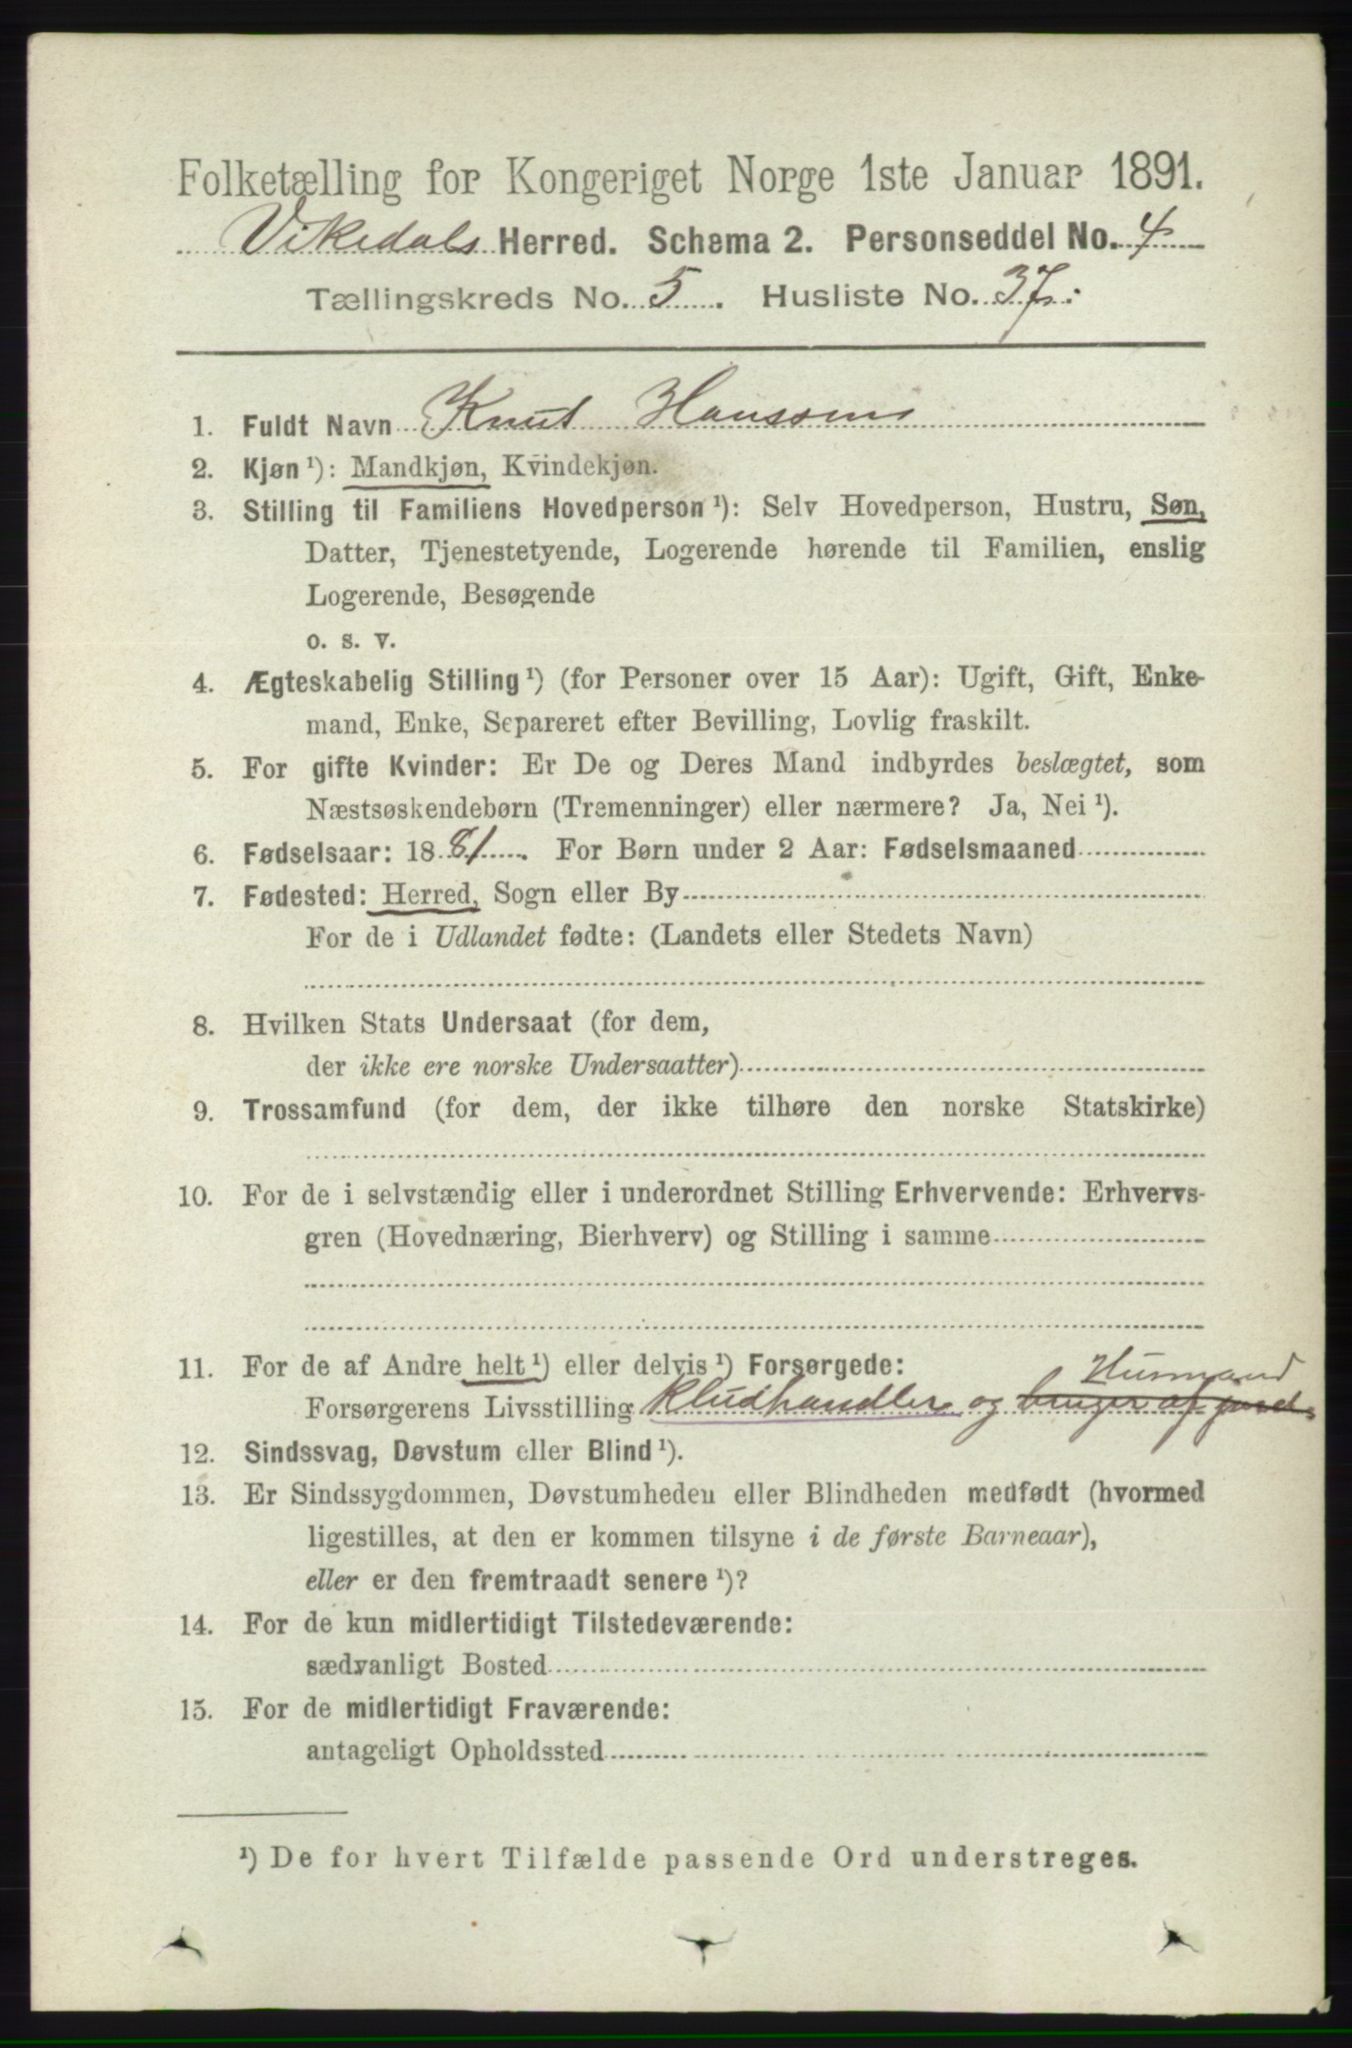 Folketælling for Kongeriget Norge 1ste Januar 1891.
Vikedals Herred. Schema 2. Personseddel No. 4
Tællingskreds No. 5. Husliste No. 37.
1. Fuldt Navn Knut Hanssen
2. Kjøn ¹): Mandkjøn, Kvindekjøn.
3. Stilling til Familiens Hovedperson ¹): Selv Hovedperson, Hustru, Søn,
Datter, Tjenestetyende, Logerende hørende til Familien, enslig
Logerende, Besøgende
o. s. v.
4. Ægteskabelig Stilling ¹) (for Personer over 15 Aar): Ugift, Gift, Enke-
mand, Enke, Separeret efter Bevilling, Lovlig fraskilt.
5. For gifte Kvinder: Er De og Deres Mand indbyrdes beslægtet, som
Næstsøskendebørn (Tremenninger) eller nærmere? Ja, Nei ¹).
6. Fødselsaar: 1881. For Børn under 2 Aar: Fødselsmaaned
7. Fødested: Herred, Sogn eller By
For de i Udlandet fødte: (Landets eller Stedets Navn)
8. Hvilken Stats Undersaat (for dem,
der ikke ere norske Undersaatter)
9. Trossamfund (for dem, der ikke tilhøre den norske Statskirke)
10. For de i selvstændig eller i underordnet Stilling Erhvervende: Erhvervs-
gren (Hovednæring, Bierhverv) og Stilling i samme
11. For de af Andre helt ¹) eller delvis ¹) Forsørgede:
Husmand
Forsørgerens Livsstilling kludhandler og bruger af gaard
12. Sindssvag, Døvstum eller Blind ¹).
13. Er Sindssygdommen, Døvstumheden eller Blindheden medfødt (hvormed
ligestilles, at den er kommen tilsyne i de første Barneaar),
eller er den fremtraadt senere ¹)?
14. For de kun midlertidigt Tilstedeværende:
sædvanligt Bosted
15. For de midlertidigt Fraværende:
antageligt Opholdssted
¹) De for hvert Tilfælde passende Ord understreges.